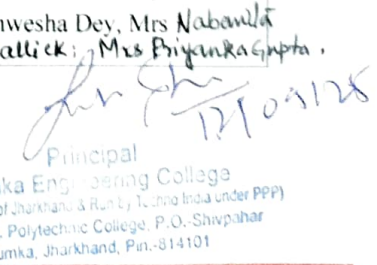 nwesha Dey, Mrs Nabanita
allick; Mrs Priyanka Gupta.
12/09/25
Principal
ka Engineering College
of Jharkhand & Run by Techno India under PPP)
. Polytechnic College, P.O.-Shivpahar
umka, Jharkhand, Pin.-814101